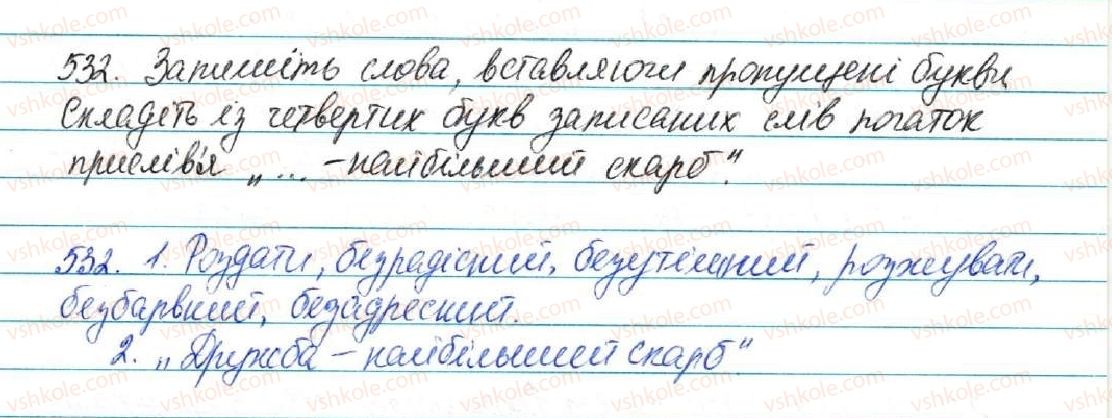 532. Запишіть слова, вставляючи пропущені букви
Складіть із четвертих букв записаних слів початок
прислів'я „... – найбільший скарб".
532. 1. Роздати, безрадісний, безутішний, розжувати,
безбарвний, безадресний.
2. „Дружба – найбільший скарб"